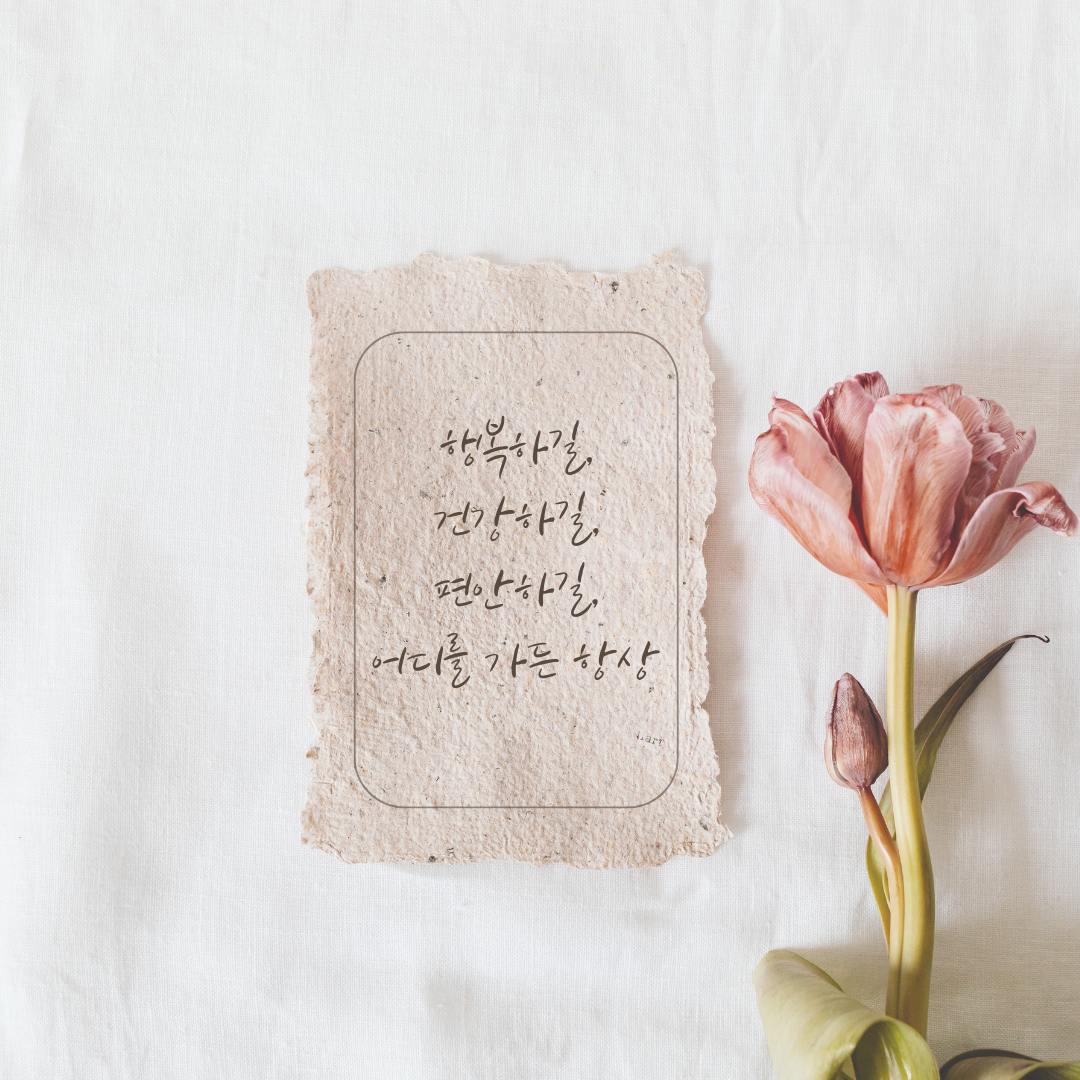 행복하길,
건강하길,
편안하길,
어디를 가든 항상